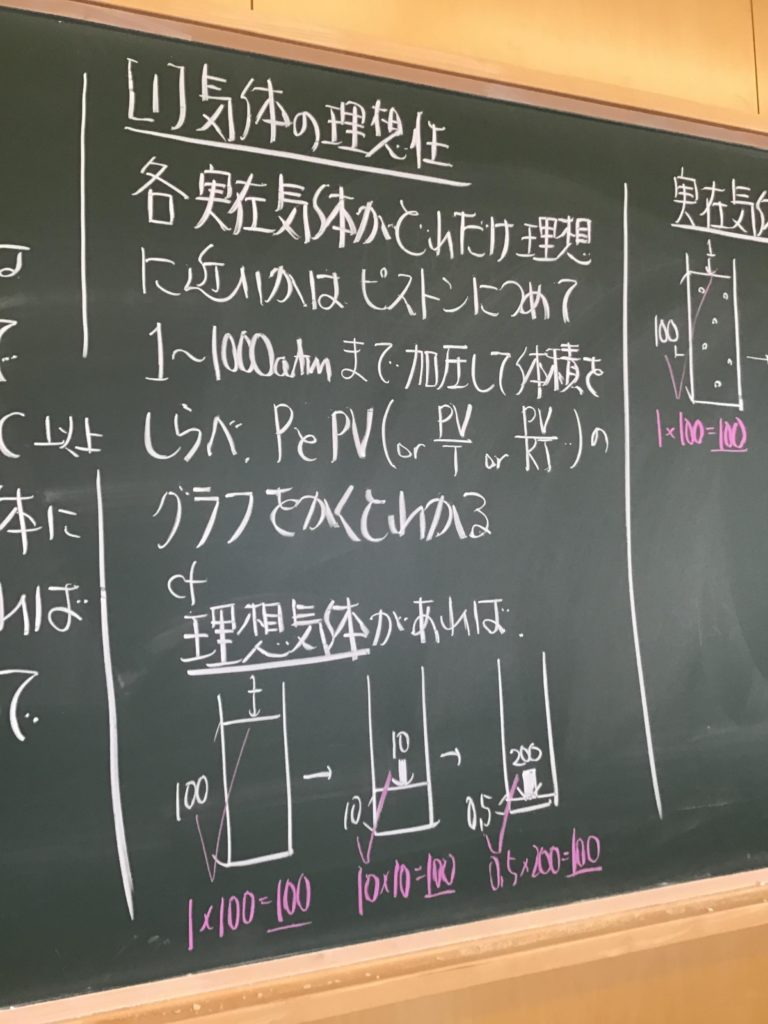 [1]気体の理想性
各実在気体がどれだけ理想
に近いかは ピストンにつめて
1〜1000atmまで加圧して体積を
しらべ、PとPV(or PV/T or PV/RT)の
グラフをかくとわかる
cf
理想気体があれば、
1
100
1×100=100
→
10
10
10×10=100
→
200
0.5
0.5×200=100
実在気体
1
100
1×100=100
→
く以上
体に
れば
て